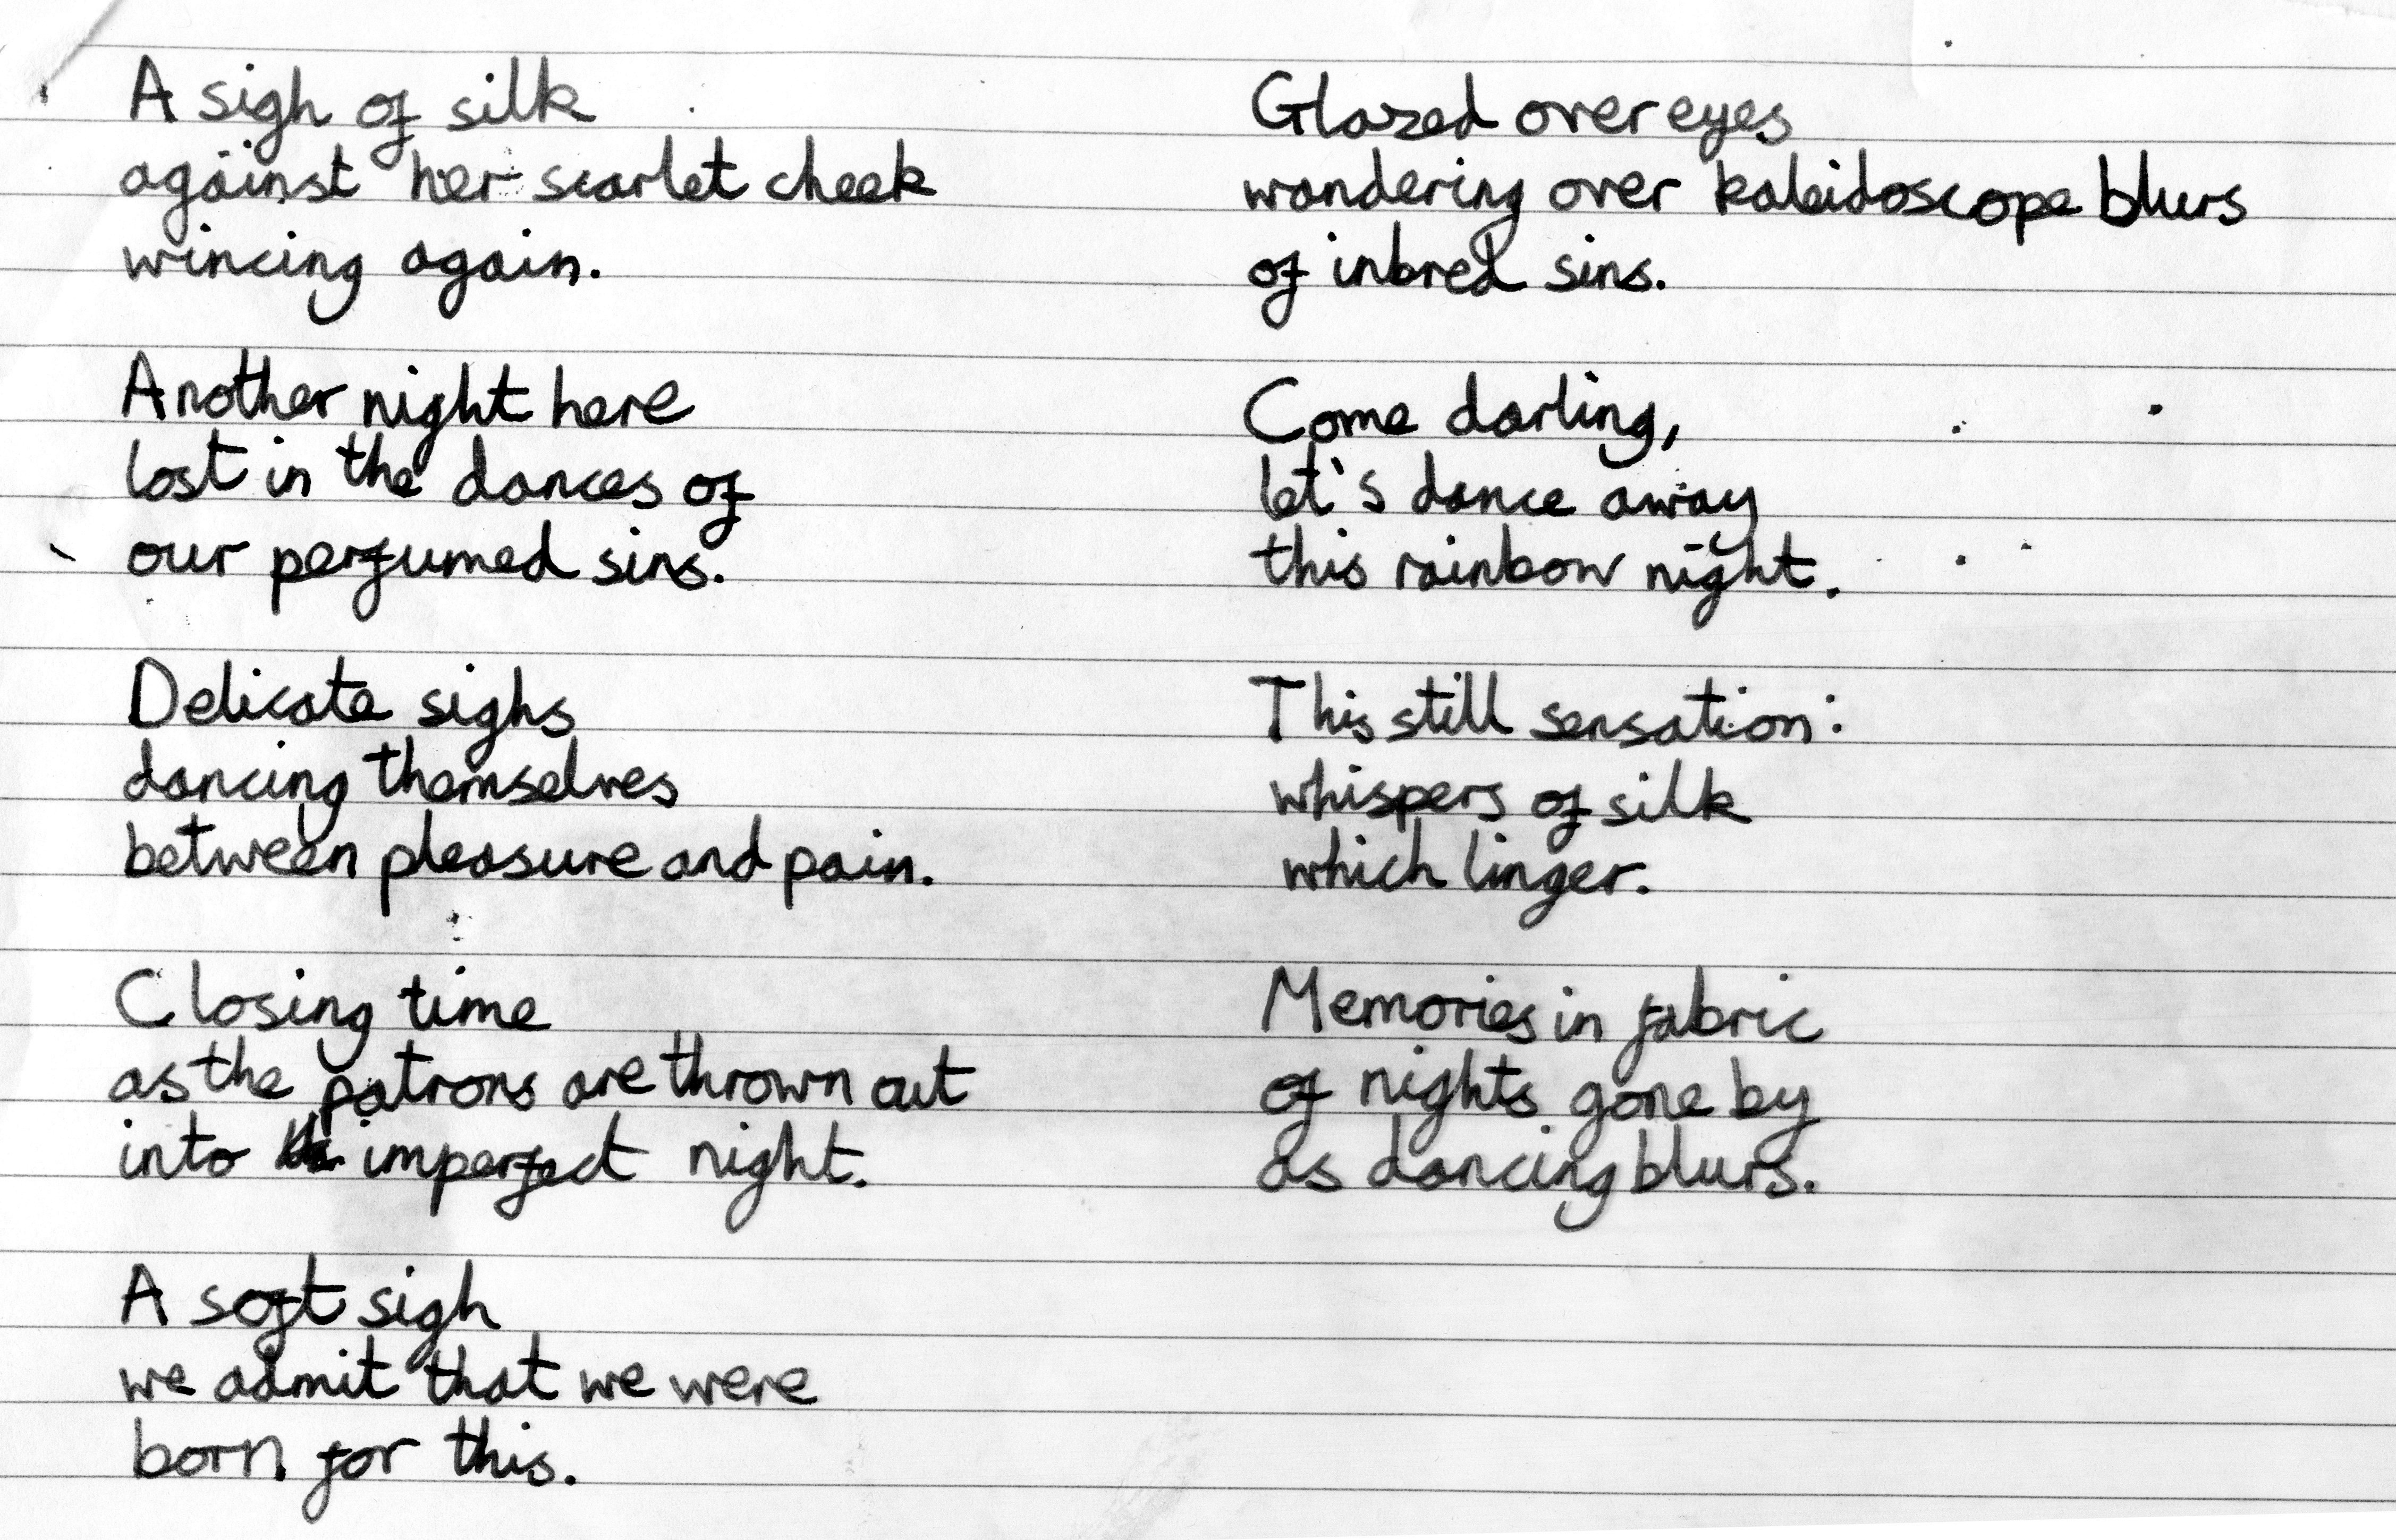 A sigh of silk
against her scarlet cheek
wincing again.
Another night here
lost in the dances of
our perfumed sins.
Delicate sighs
dancing themselves
between pleasure and pain.
Closing time
as the patrons are thrown out
into imperfect night.
A soft sigh
we admit that we were
born for this.
Glazed over eyes
wandering over kaleidoscope blurs
of inbred sins.
Come darling,
let's dance away
this rainbow night.
This still sensation:
whispers of silk
which linger.
Memories in fabric
of nights gone by
as dancing blurs.